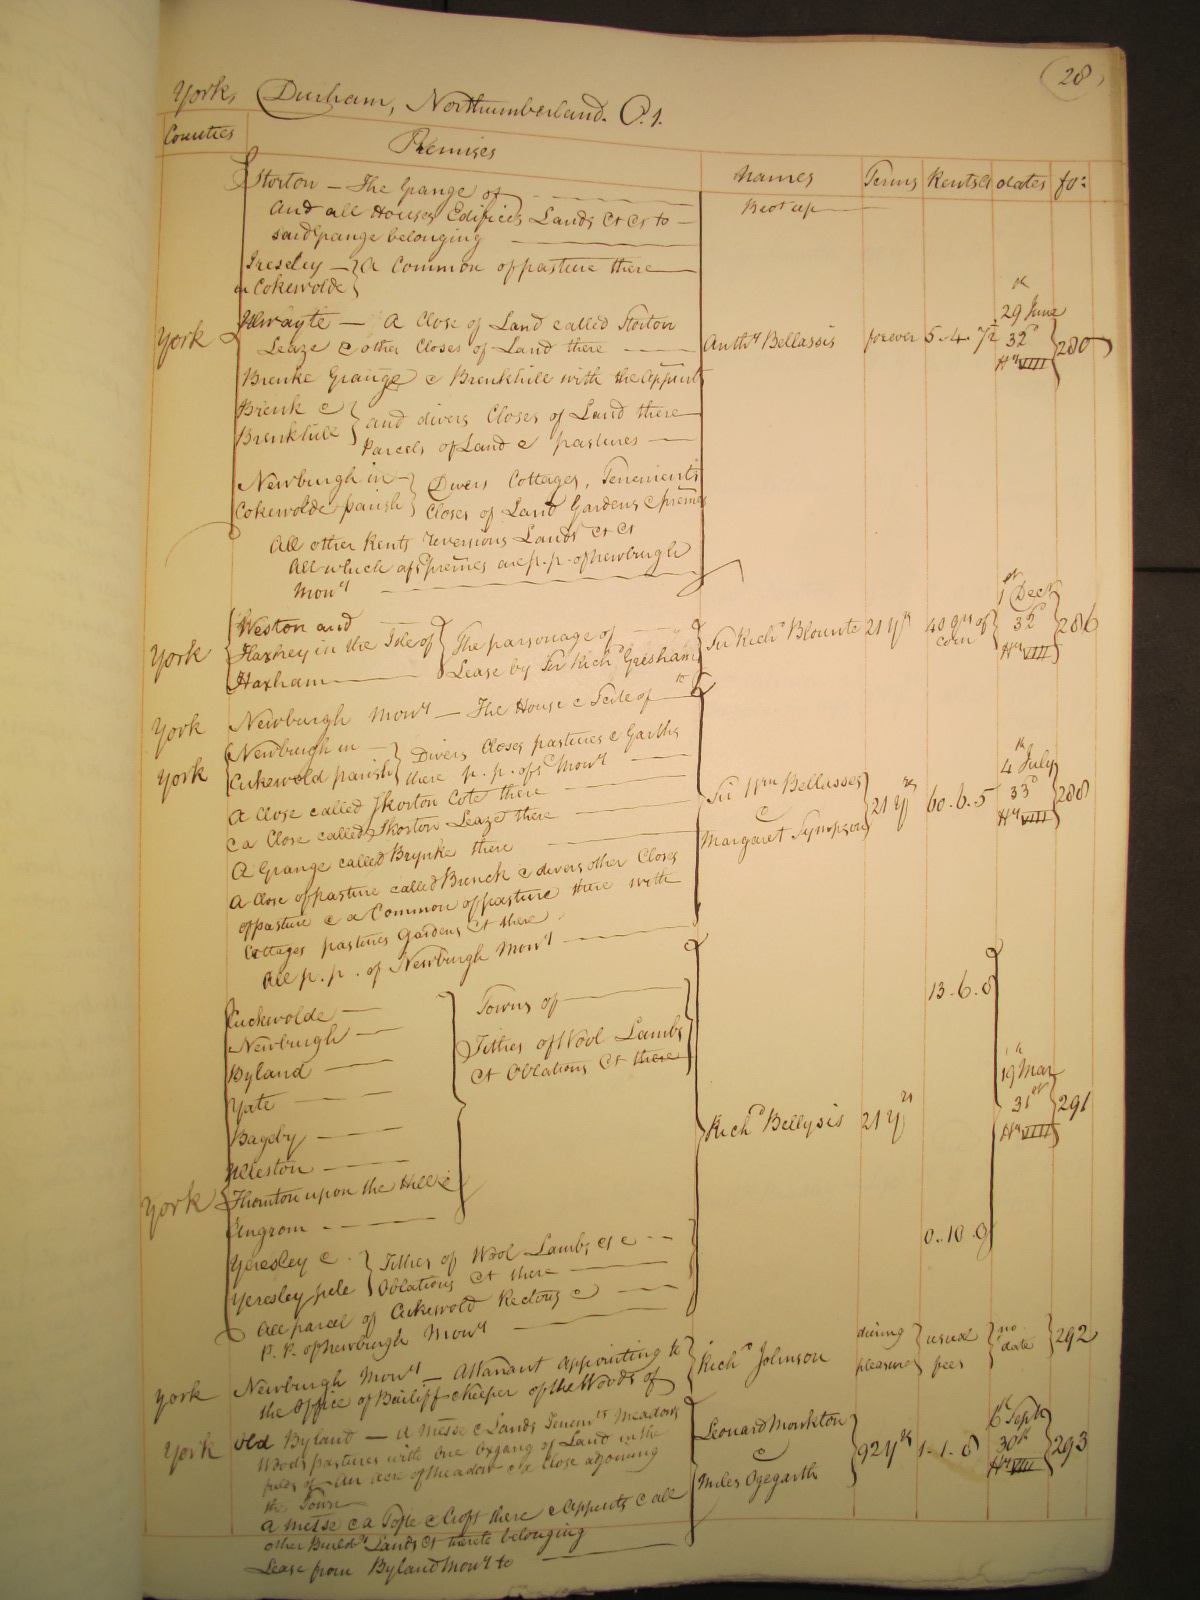 28
York, Durham, Northumberland. P. 1.
Counties Premises Names Terms Rents &c dates fo:
Storton — The Grange of
And all Houses Edifices Lands &c &c to —
said grange belonging
Ireseley — } A Common of pasture there
in Cokewolde }
York
Thwayte — A Close of Land called Storton
Leaze & other Closes of Land there
Brenke Grange & Brenkhile with the Appurts
Brenk & } and divers Closes of Land there
Brenkhile } Parcels of Land & pastures —
Anthy Bellassis forever 5.. 4. 7½ 29th June 32d Hy VIII 280
Newburgh in } Divers Cottages, Tenements
Cokewolde parish } Closes of Land Gardens & premes
All other Rents reversions Lands &c &c
All which afsd premes are p. p. of Newburgh
Mony
York
Weston and
Haxhey in the Isle of } The parsonage of
Haxham } Lease by Sir Richd Gresham
Sir Richd Blounte 21 yrs 40 qrs of corn 1st Decr 32d Hy VIII 286
York Newburgh Mony — The House & Scite of
York Newburgh in — } Divers Closes pastures & Garths
Cukewold parish } there p. p. of sd Mony
A Close called Skorton Cote there
& a Close called Skorton Leaze there
A Grange called Brynke there
A Close of pasture called Brenck & divers other Closes
of pasture & a Common of pasture there with
Cottages pastures Gardens &c there
All p. p. of Newburgh Mony
Sir Wm Bellasses
&
Margaret Sympson
21 yrs 60. 6. 5 4th July 33d Hy VIII 288
Cuckwolde — Towns of
Newburgh —
Byland — Tithes of Wool Lambs
Yate — &c Oblations &c there
Bageby —
Ylleston —
York Thornton upon the Hill &
Angrom —
Yeresley & } Tithes of Wool Lambs &c &
Yeresley pele } Oblations &c there
All parcel of Cukewold Rectory &
P. P. of Newburgh Mony
13. 6. 8
Richd Bellysis 21 yrs 19th Mar 31st Hy VIII 291
0. 10. 0
York Newburgh Mony — A Warrant Appointing to
the Office of Bailiff & Keeper of the Woods of
Richd Johnson during pleasure usual fees no date 292
York Old Byland — A Messe & Lands Tenemts Meadows
Woods pastures with one Oxgang of Land in the
fields of — An acre of Meadow & a Close adjoining
the Town
A Messe & a Tofte & Croft there & Appurts & all
other Buildgs Lands &c thereto belonging
Lease from Byland Mony to
Leonard Monkton
&
Miles Ogegarth
92 yrs 1. 1. 8 6th Sept 30th Hy VIII 293